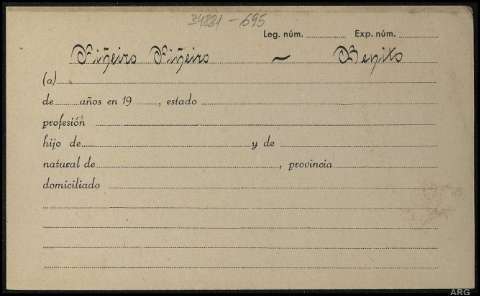 34221-695
Leg. núm. Exp. núm.
Piñeiro Piñeiro ~ Benito
(a)
de años en 19 , estado
profesión
hijo de y de
natural de , provincia
domiciliado
ARG